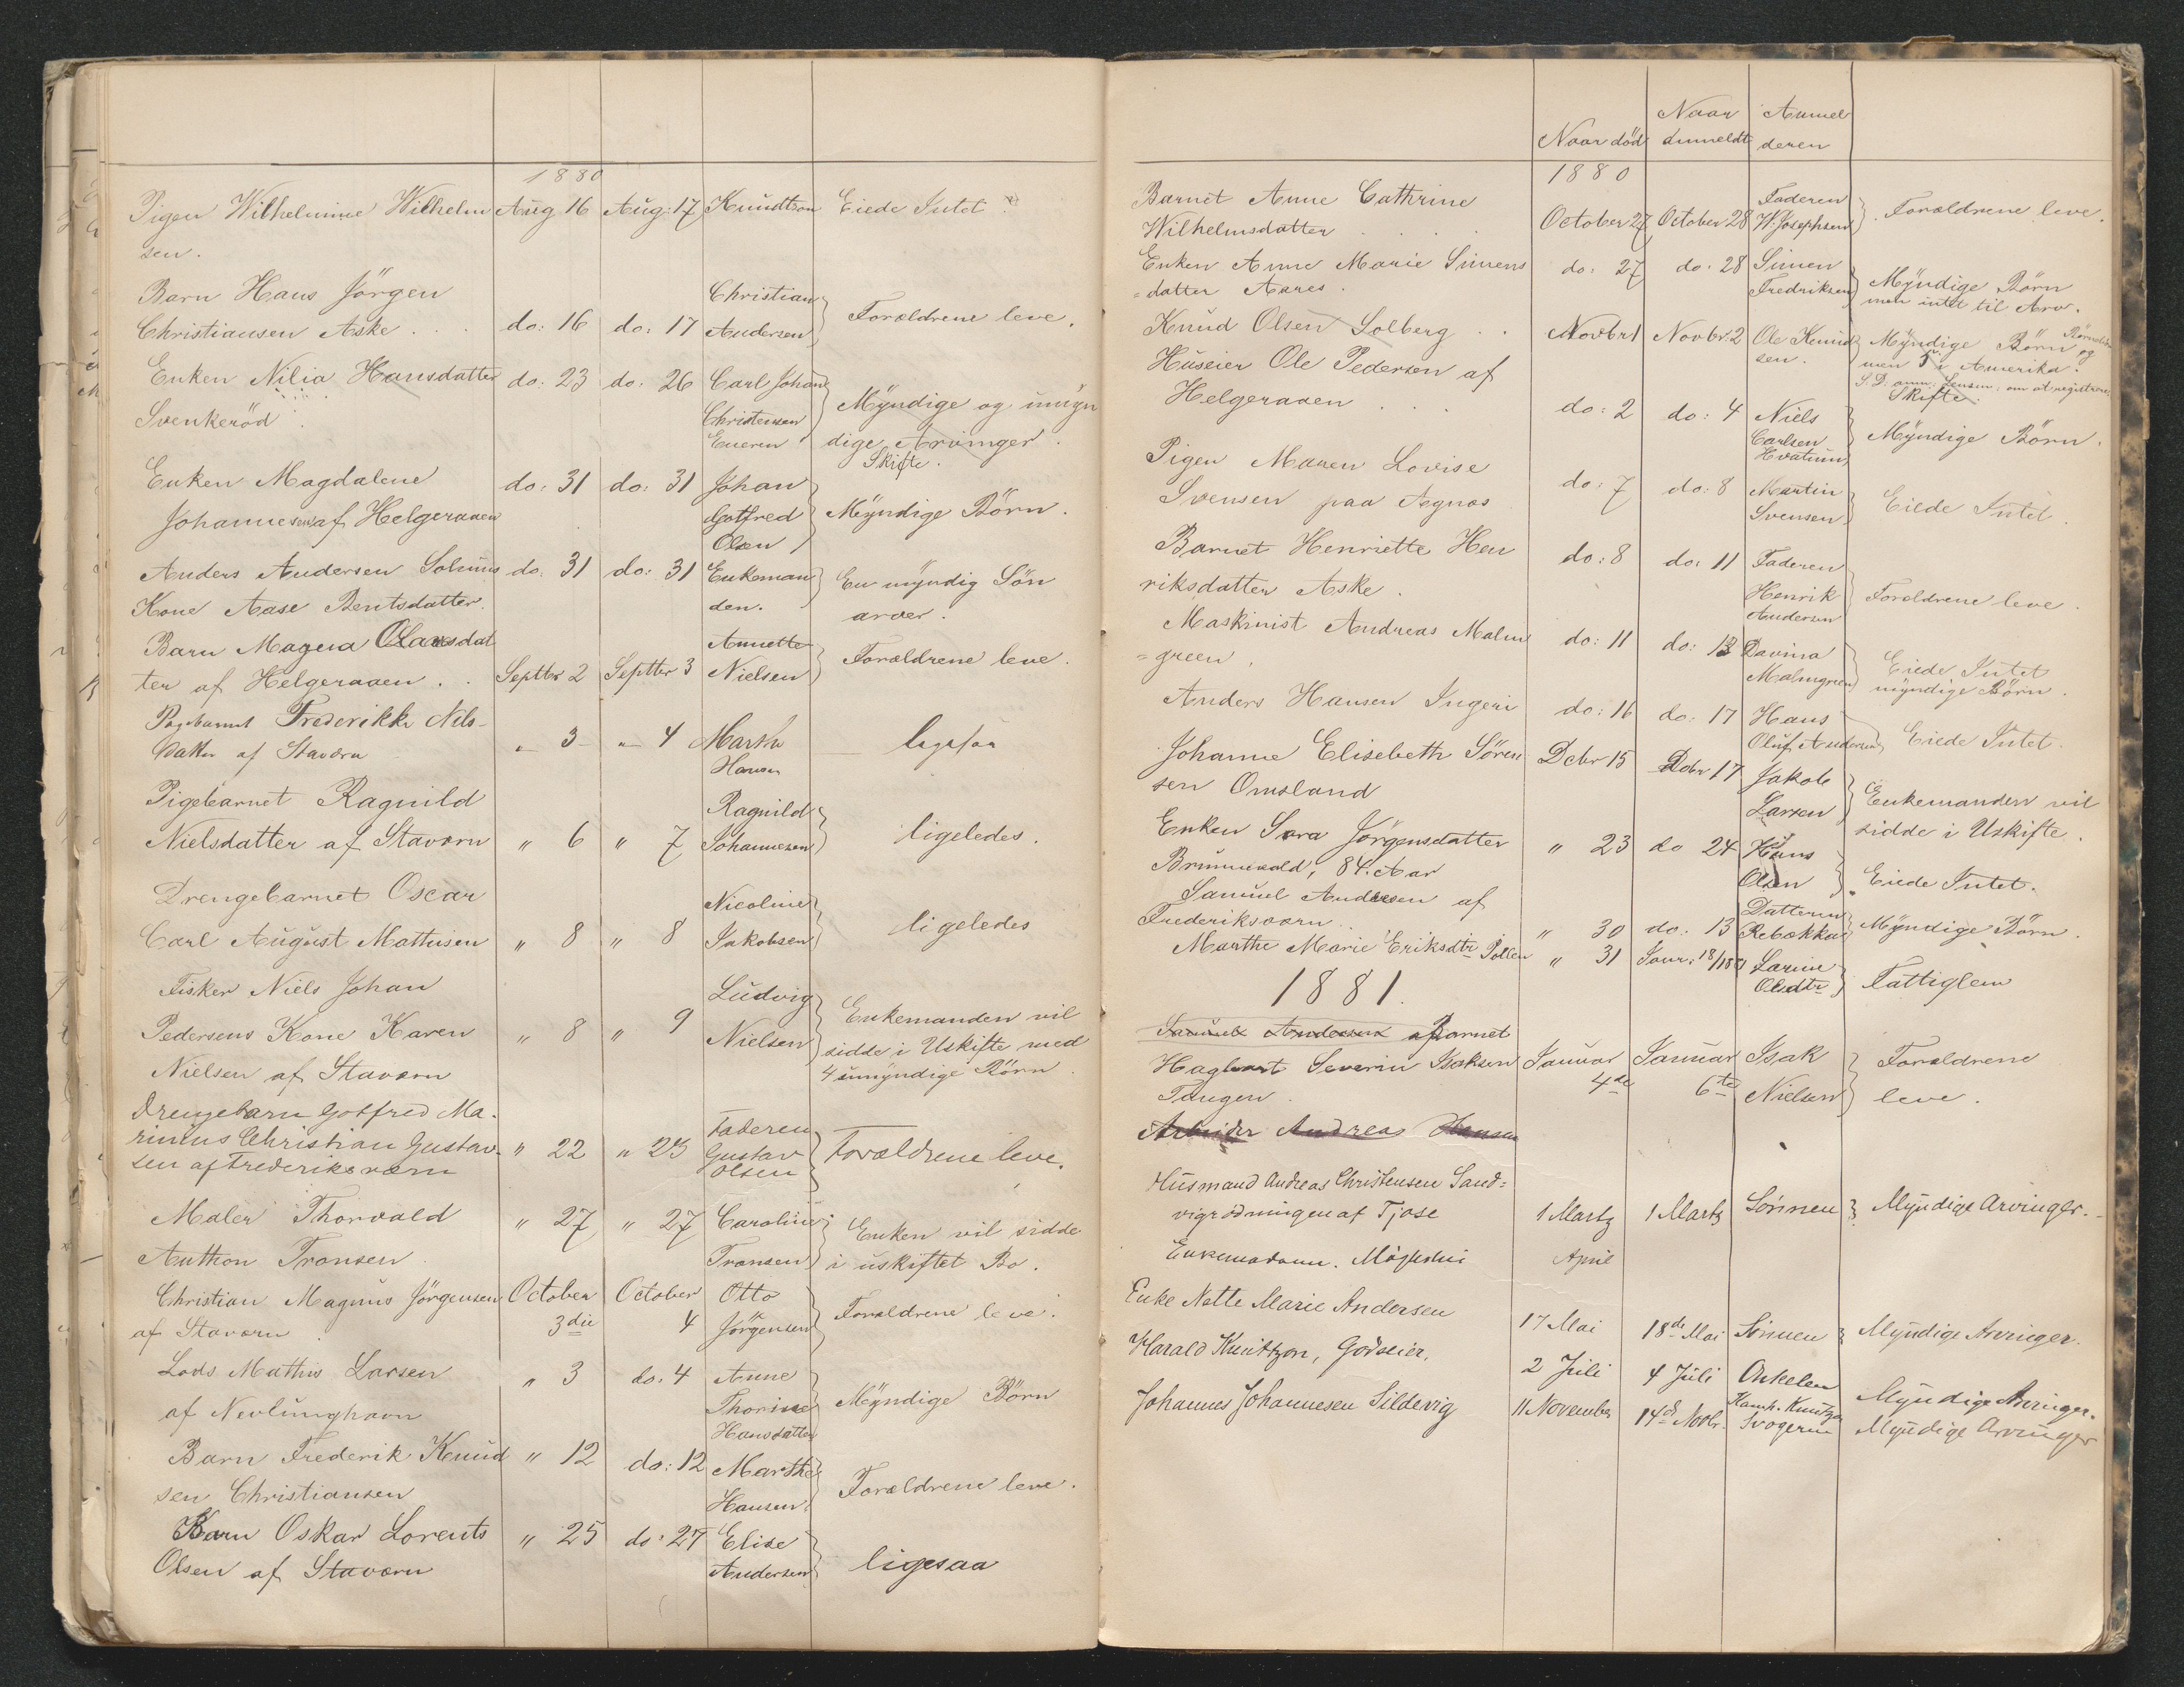 1880
Pigen Wilhelmine Wilhelm Aug 16 Aug: 17 Knudtson Eiede Intet
sen.
Barn Hans Jörgen Christian
Christiansen Aske . . . do: 16 do: 17 Andersen Forældrene leve.
Enken Nilia Hansdatter do: 23 do: 26 Carl Johan
Svenkeröd Christensen Myndige og umyn
dige Arvinger.
Skifte.
Enken Magdalene do: 31 do: 31 Johan
Johannesen af Helgeraaen Gotfred Myndige Börn.
Olsen
Anders Andersen Solums do: 31 do: 31 Enkeman En myndig Sön
Kone Aase Bentsdatter. den. arver.
Barn Magna Olausdat Annette
ter af Helgeraaen . . Septbr 2 Septbr 3 Nielsen Forældrene leve.
Pigebarnet Frederikke Nils-
datter af Stavern " 3 " 4 Marthe ligesaa
Hansen
Pigebarnet Ragnild Ragnild
Nielsdatter af Staværn " 6 " 7 Johannesen ligeledes.
Drengebarnet Oscar Nicoline
Carl August Mathisen " 8 " 8 Jakobsen ligeledes
Fisker Niels Johan Ludvig
Pedersens Kone Karen " 8 " 9 Nielsen Enkemanden vil
Nielsen af Staværn sidde i Uskifte med
4 umyndige Börn
Drengebarn Gotfred Ma- Faderen
rinius Christian Gustav- " 22 " 23 Gustav Forældrene leve.
sen af Frederiksværn Olsen
Maler Thorvald " 27 " 27 Caroline Enken vil sidde
Anthon Tronsen Tronsen i uskiftet Bo.
Christian Magnus Jörgensen October October Otto
af Staværn 3die 4 Jörgensen Forældrene leve.
Lods Mathis Larsen " 3 do. 4 Anne
af Nevlunghavn Thorine Myndige Börn
Hansdatter
Barn Frederik Knud " 12 do: 12 Marthe
sen Christiansen Hansen Forældrene leve.
Barn Oskar Lorents " 25 do: 27 Elise
Olsen af Staværn Andersen ligesaa
Naar död Naar anmeldt Anmel
deren
1880
Barnet Anne Cathrine Faderen
Wilhelmsdatter . . . . October 27 October 28 W. Josephsen Forældrene leve.
Enken Anne Marie Simens do: 27 do: 28 Simen Myndige Börn
=datter Aares. Fredriksen men intet til Arv.
Knud Olsen Solberg . . Novbr 1 Novbr. 2 Ole Knud Myndige Börn og
sen. men i Amerika.
Huseier Ole Pedersen af Skifte.
Helgeraaen . . . do: 2 do: 4 Niels
Carlsen Myndige Börn.
Hvatum
Pigen Maren Lovise do: 7 do: 8 Martin
Svensen paa Agnæs Svensen Eiede Intet.
Barnet Henriette Hen do: 8 do: 11 Faderen
riksdatter Aske. Henrik Forældrene leve.
Andersen
Maskinist Andreas Malm do: 11 do: 13 Davina Eiede Intet
=green, Malmgreen myndige Börn.
Anders Hansen Ingeri do: 16 do: 17 Hans
Oluf Andersen Eiede Intet.
Johanne Elisebeth Sören Dcbr 15 Dcbr 17 Jakob
sen Omsland Larsen Enkemanden vil
sidde i Uskifte.
Enken Sara Jörgensdatter " 23 do 24 Hans
Brunnevald, 84. Aar Olsen Eiede Intet.
Samuel Andersen af Datteren
Frederiksværn . . " 30 do. 13 Rebekka Myndige Börn.
Marthe Marie Eriksdtr Pollen " 31 Janr. 18/1881 Larine
Olsdtr Fattiglem
1881.
Samuel Andersen af Barnet
Hagbart Severin Isaksen Januar Januar Isak Forældrene
Tangen. 4de 6te Nielsen leve.
Arbeider Andreas Hansen
Husmand Andreas Christensen Sand=
vigrödningen af Tjose 1 Marts 1 Marts Sönnen Myndige Arvinger.
Enkemadam. April
Enke Nette Marie Andersen 17 Mai 18de Mai Sönnen Myndige Arvinger.
Harald Knutzon, Godseier, 2 Juli 4 Juli Onkelen
Kamh. Knutzon Myndige Arvinger.
Johannes Johannesen Sildevig 11 November 14de Novbr. Svogeren Myndige Arvinger